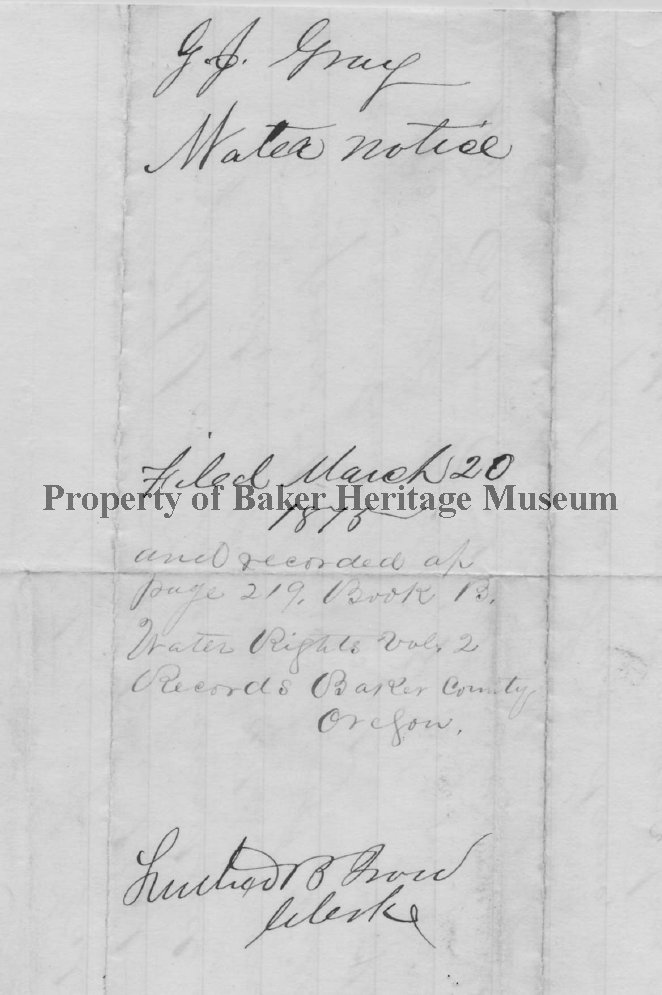 G. J. Gray
Water notice
Filed March 20
Property of Baker Heritage Museum
1875
and recorded at
page 219. Book B.
Water Rights Vol. 2
Records Baker County
Oregon.
B
Clerk